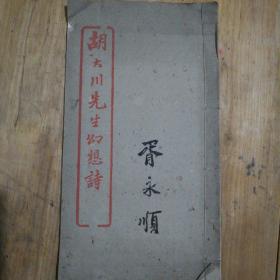 胡大川先生幻想詩
胥永順